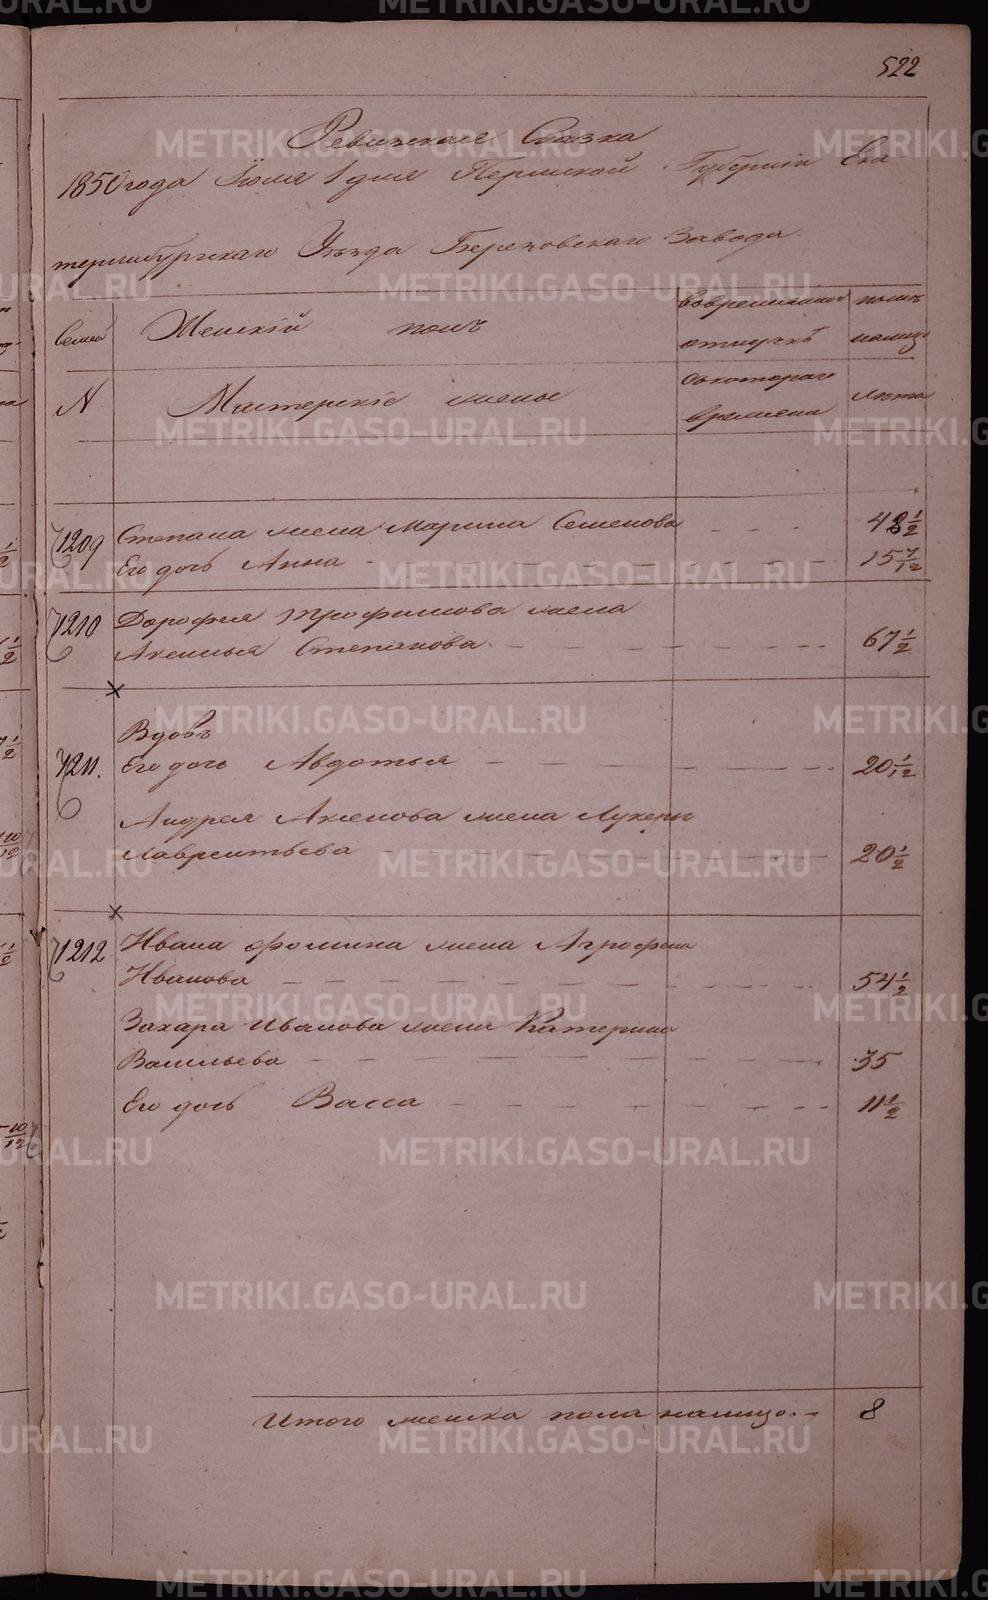 522
Ревизская Сказка
1850 года Июля 1 дня Пермской Губернии Ека
теринбургскаго Уезда Березовскаго Завода
семей Женскій полъ вовременной отлучкѣ налицо
N Мастерскіе жены съкотораго времени лѣта
1209 Степана жена Марина Семенова 48 1/2
Его дочь Анна 15 7/12
1210 Дорофея Трофимова жена
Аксинья Степанова 67 1/2
Вдовъ
1211. Его дочь Авдотья 20 1/12
Андрея Аксенова жена Лукерья
Лаврентьева 20 1/2
1212 Ивана Фомина жена Агрофена
Иванова 54 1/2
Захара Иванова жена Катерина
Васильева 35
Его дочь Васса 11 1/2
Итого женска пола налицо 8
METRIKI.GASO-URAL.RU